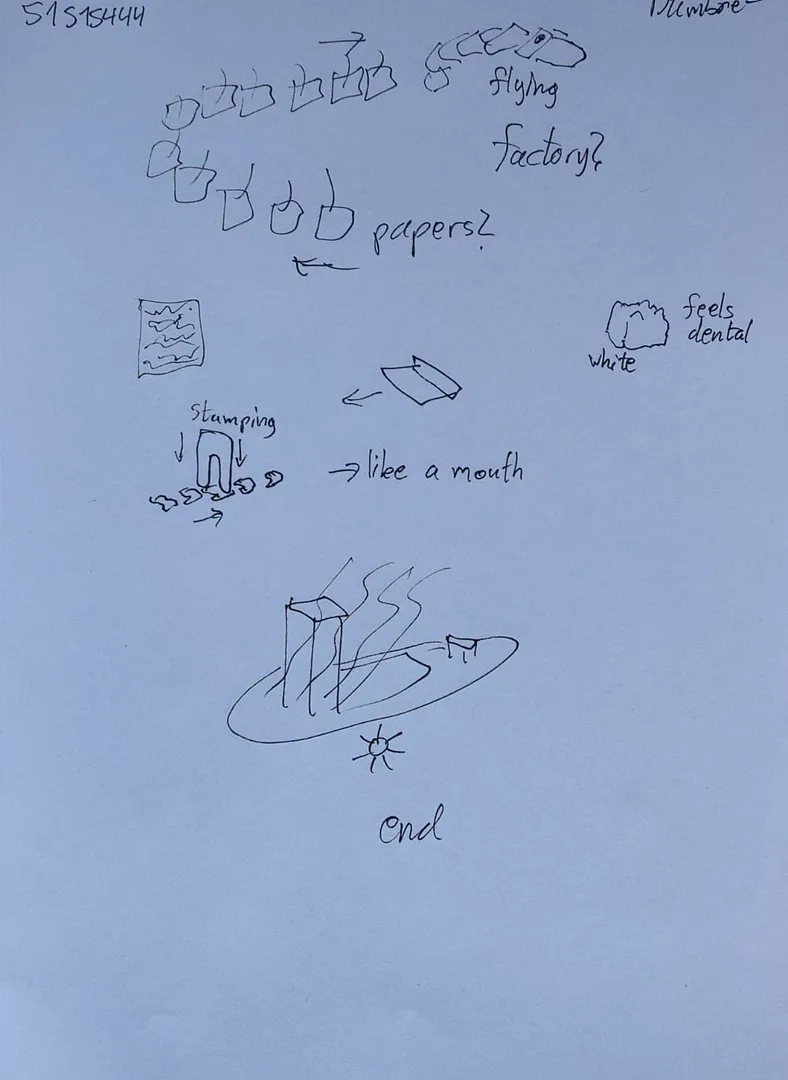 51515444
flying
factory?
papers?
feels
dental
white
Stamping
→ like a mouth
end